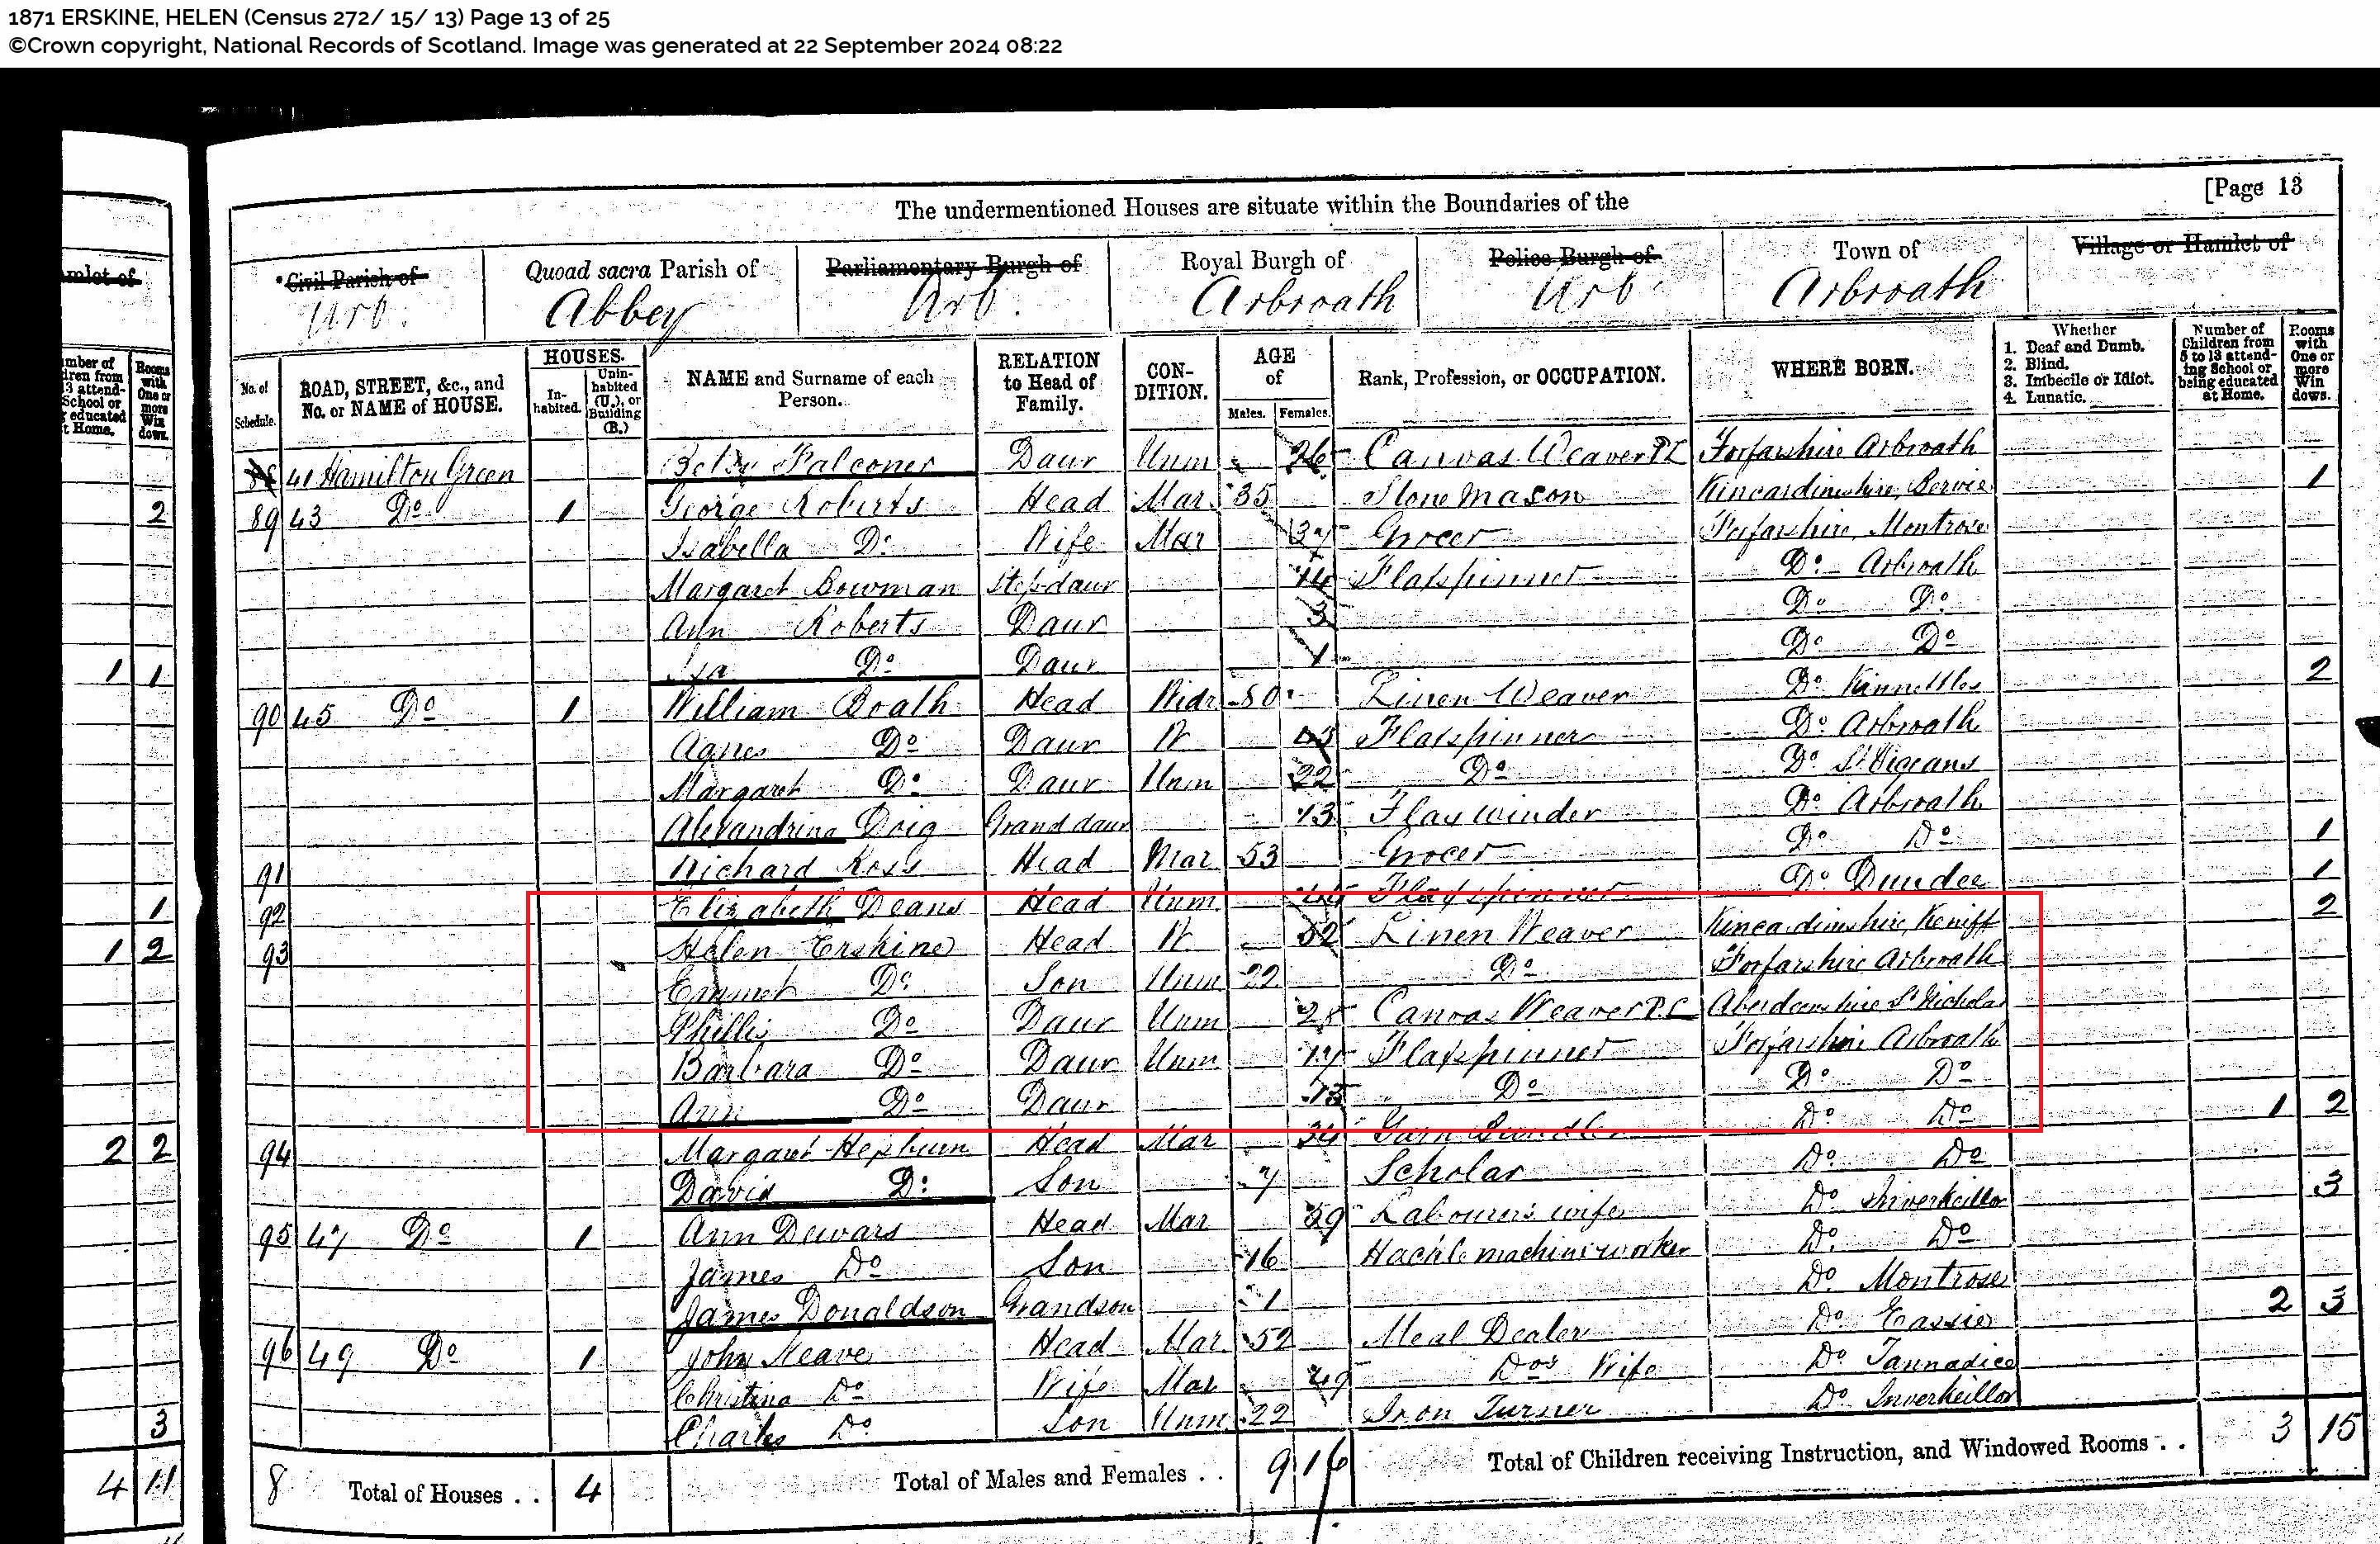 1871 ERSKINE, HELEN (Census 272/ 15/ 13) Page 13 of 25
©Crown copyright, National Records of Scotland. Image was generated at 22 September 2024 08:22
[Page 13
The undermentioned Houses are situate within the Boundaries of the
Civil Parish of Quoad sacra Parish of Parliamentary Burgh of Royal Burgh of Police Burgh of Town of Village or Hamlet of
Abbey Arbroath Arbroath
No. of Schedule. ROAD, STREET, &c., and No. or NAME of HOUSE. HOUSES. Inhabited. Uninhabited (U.), or Building (B.) NAME and Surname of each Person. RELATION to Head of Family. CONDITION. AGE of Males. Females. Rank, Profession, or OCCUPATION. WHERE BORN. Whether 1. Deaf and Dumb. 2. Blind. 3. Imbecile or Idiot. 4. Lunatic. Number of Children from 5 to 13 attending School or being educated at Home. Rooms with One or more Windows.
41 Hamilton Green Betsy Falconer Daur Unm 26 Canvas Weaver P.L Forfarshire Arbroath
89 43 Do 1 George Roberts Head Mar 35 Stone Mason Kincardineshire, Bervie 1
Isabella Do Wife Mar 37 Grocer Forfarshire, Montrose
Margaret Bowman Stepdaur 14 Flaxspinner Do Arbroath
Ann Roberts Daur 3 Do Do
Isa Do Daur 1 Do Do
90 45 Do 1 William Boath Head Widr 80 Linen Weaver Do Kinnettles 2
Agnes Do Daur W 43 Flaxspinner Do Arbroath
Margaret Do Daur Unm 22 Do Do St Vigeans
Alexandrina Doig Grand daur 13 Flax winder Do Arbroath
91 Richard Ross Head Mar 53 Grocer Do Do 1
92 Elizabeth Deans Head Unm 44 Flaxspinner Do Dundee 1
93 Helen Erskine Head W 52 Linen Weaver Kincardineshire, 2
Emmet Do Son Unm 22 Do Forfarshire Arbroath
Phillis Do Daur Unm 25 Canvas Weaver P.L Aberdeenshire St Nicholas
Barbara Do Daur Unm 17 Flaxspinner Forfarshire Arbroath
Ann Do Daur 15 Do Do Do
94 Margaret Hepburn Head Mar 34 Yarn Bundler Do Do 1 2
David Do Son 7 Scholar Do Do
95 47 Do 1 Ann Dewars Head Mar 39 Labourers wife Do Inverkeillor 3
James Do Son 16 Hackle machine worker Do Do
James Donaldson Grandson 1 Do Montrose
96 49 Do 1 John Neave Head Mar 52 Meal Dealer Do Eassie 2 3
Christina Do Wife Mar 49 Dos Wife Do Tannadice
Charles Do Son Unm 22 Iron Turner Do Inverkeillor
8 Total of Houses . . 4 Total of Males and Females . . 9 16 Total of Children receiving Instruction, and Windowed Rooms . . 3 15